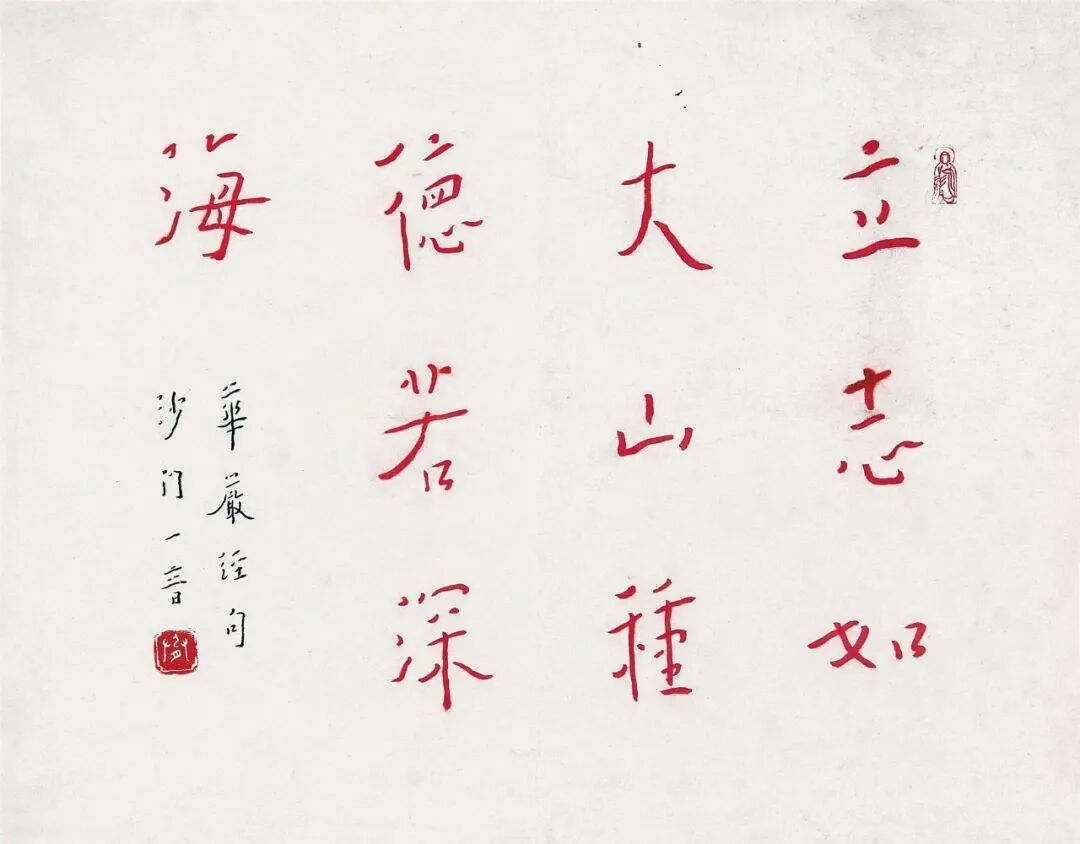 立志如
大山種
德若深
海
華嚴經句
沙门一音